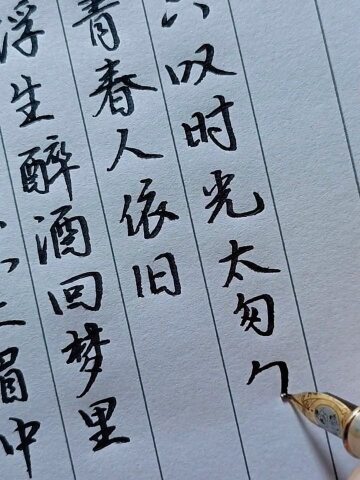 只叹时光太匆
青春人依旧
浮生醉酒回梦里
上眉中